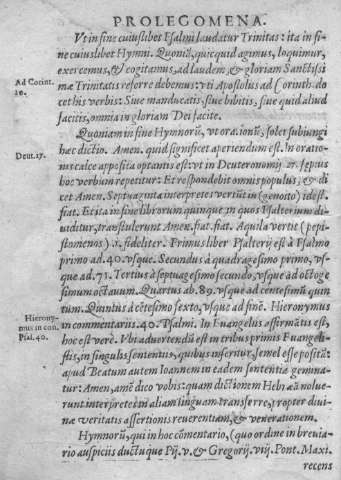 PROLEGOMENA.
Vt in fine cuiuslibet Psalmi laudatur Trinitas: ita in fi-
ne cuiuslibet Hymni. Quoniã, quicquid agimus, loquimur,
exercemus, & cogitamus, ad laudem, & gloriam Sanctissi
mæ Trinitatis referre debemus: vti Apostolus ad Corinth. do
cet his verbis: Siue manducatis, siue bibitis, siue quid aliud
facitis, omnia in gloriam Dei facite.
Ad Corint.
10.
Quoniam in fine Hymnorũ, vt orationũ, solet subiungi
hæc dictio. Amen. quid significet aperiendum est. In oratio-
nis calce apposita optantis est: vt in Deuteronomij 27. septus
hoc verbum repetitur: Et respondebit omnis populus, & di
cet Amen. Septuaginta interpretes vertũt in (genoito) idest.
fiat. Et ita in fine librorum quinque in quos Psalterium di-
uiditur, transtulerunt Amen. fiat. fiat. Aquila vertit (pepi-
stomenos) .i. fideliter. Primus liber Psalterij est à Psalmo
primo ad .40. vsque. Secundus à quadragesimo primo, vs-
que ad .71. Tertius à septuagesimo secundo, vsque ad octoge
simum octauum. Quartus ab .89. vsque ad centesimũ quin
tum. Quintus à cẽtesimo sexto, vsque ad finẽ. Hieronymus
in commentarijs .40. Psalmi. In Euangelijs affirmãtis est,
hoc est verè. Vbi aduertendũ est in tribus primis Euangeli-
stis, in singulis sententijs, quibus inseritur, semel esse positũ:
apud Beatum autem Ioannem in eadem sententia gemina-
tur: Amen, amẽ dico vobis: quam dictionem Hebræã nolue-
runt interpretes in aliam linguam transferre, propter diui-
næ veritatis assertionis reuerentiam, & venerationem.
Deut. 27.
Hierony-
mus in con.
Psal. 40.
Hymnorũ, qui in hoc cõmentario, (quo ordine in breuia-
rio auspicijs ductuque Pij. v. & Gregorij. viij. Pont. Maxi.
recens